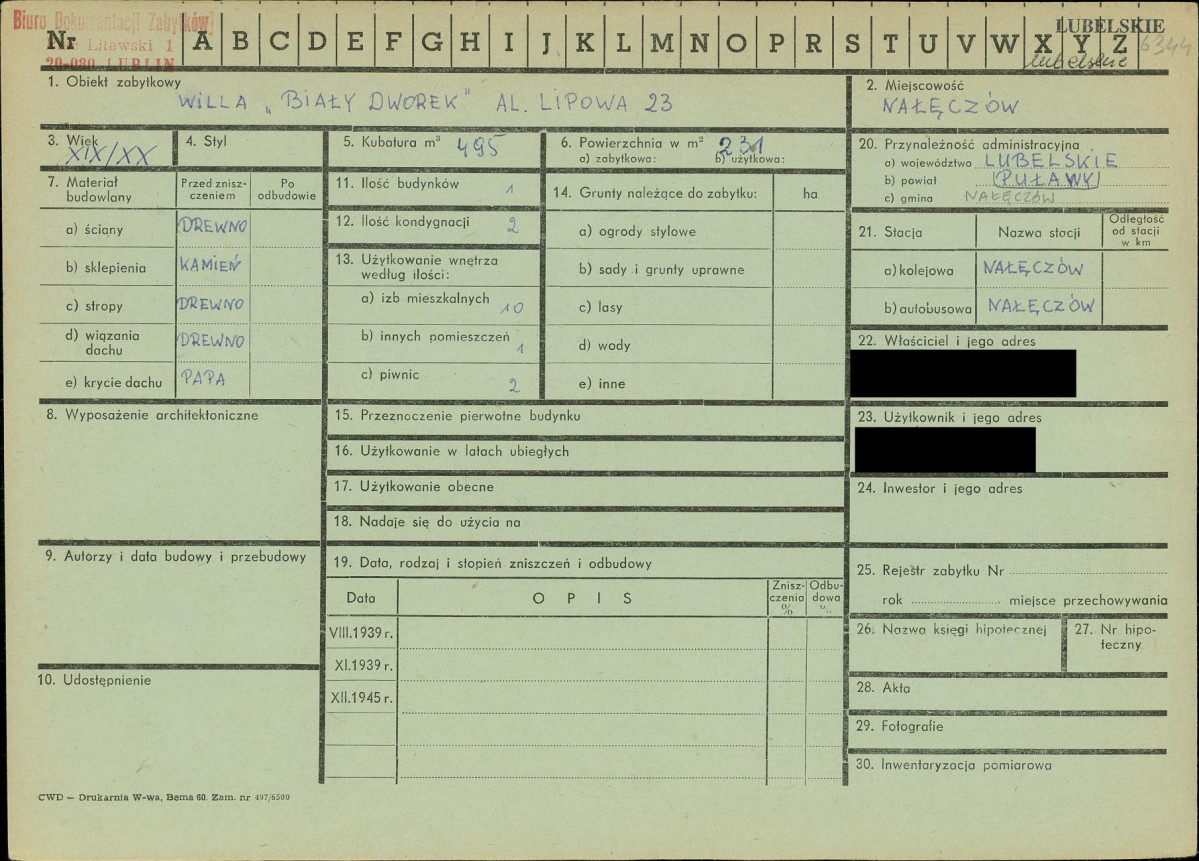 Biuro Dokumentacji Zabytków
Litewski 1
20-080 LUBLIN
Nr A B C D E F G H I J K L M N O P R S T U V W X Y Z
LUBELSKIE
lubelskie
6344
1. Obiekt zabytkowy
WILLA „BIAŁY DWOREK" AL. LIPOWA 23
2. Miejscowość
NAŁĘCZÓW
3. Wiek
XIX/XX
4. Styl
5. Kubatura m³ 495
6. Powierzchnia w m² 231
a) zabytkowa: b) użytkowa:
20. Przynależność administracyjna
a) województwo LUBELSKIE
b) powiat (PUŁAWY)
c) gmina NAŁĘCZÓW
7. Materiał budowlany
Przed zniszczeniem
Po odbudowie
a) ściany DREWNO
b) sklepienia KAMIEŃ
c) stropy DREWNO
d) wiązania dachu DREWNO
e) krycie dachu PAPA
11. Ilość budynków 1
12. Ilość kondygnacji 2
13. Użytkowanie wnętrza według ilości:
a) izb mieszkalnych 10
b) innych pomieszczeń 1
c) piwnic 2
14. Grunty należące do zabytku: ha
a) ogrody stylowe
b) sady i grunty uprawne
c) lasy
d) wody
e) inne
21. Stacja
Nazwa stacji
Odległość od stacji w km
a) kolejowa NAŁĘCZÓW
b) autobusowa NAŁĘCZÓW
22. Właściciel i jego adres
23. Użytkownik i jego adres
24. Inwestor i jego adres
8. Wyposażenie architektoniczne
15. Przeznaczenie pierwotne budynku
16. Użytkowanie w latach ubiegłych
17. Użytkowanie obecne
18. Nadaje się do użycia na
9. Autorzy i data budowy i przebudowy
19. Data, rodzaj i stopień zniszczeń i odbudowy
Data
OPIS
Zniszczenia %
Odbudowa %
VIII.1939 r.
XI.1939 r.
XII.1945 r.
10. Udostępnienie
25. Rejestr zabytku Nr
rok miejsce przechowywania
26. Nazwa księgi hipotecznej
27. Nr hipoteczny
28. Akta
29. Fotografie
30. Inwentaryzacja pomiarowa
CWD — Drukarnia W-wa, Bema 60. Zam. nr 497/6500